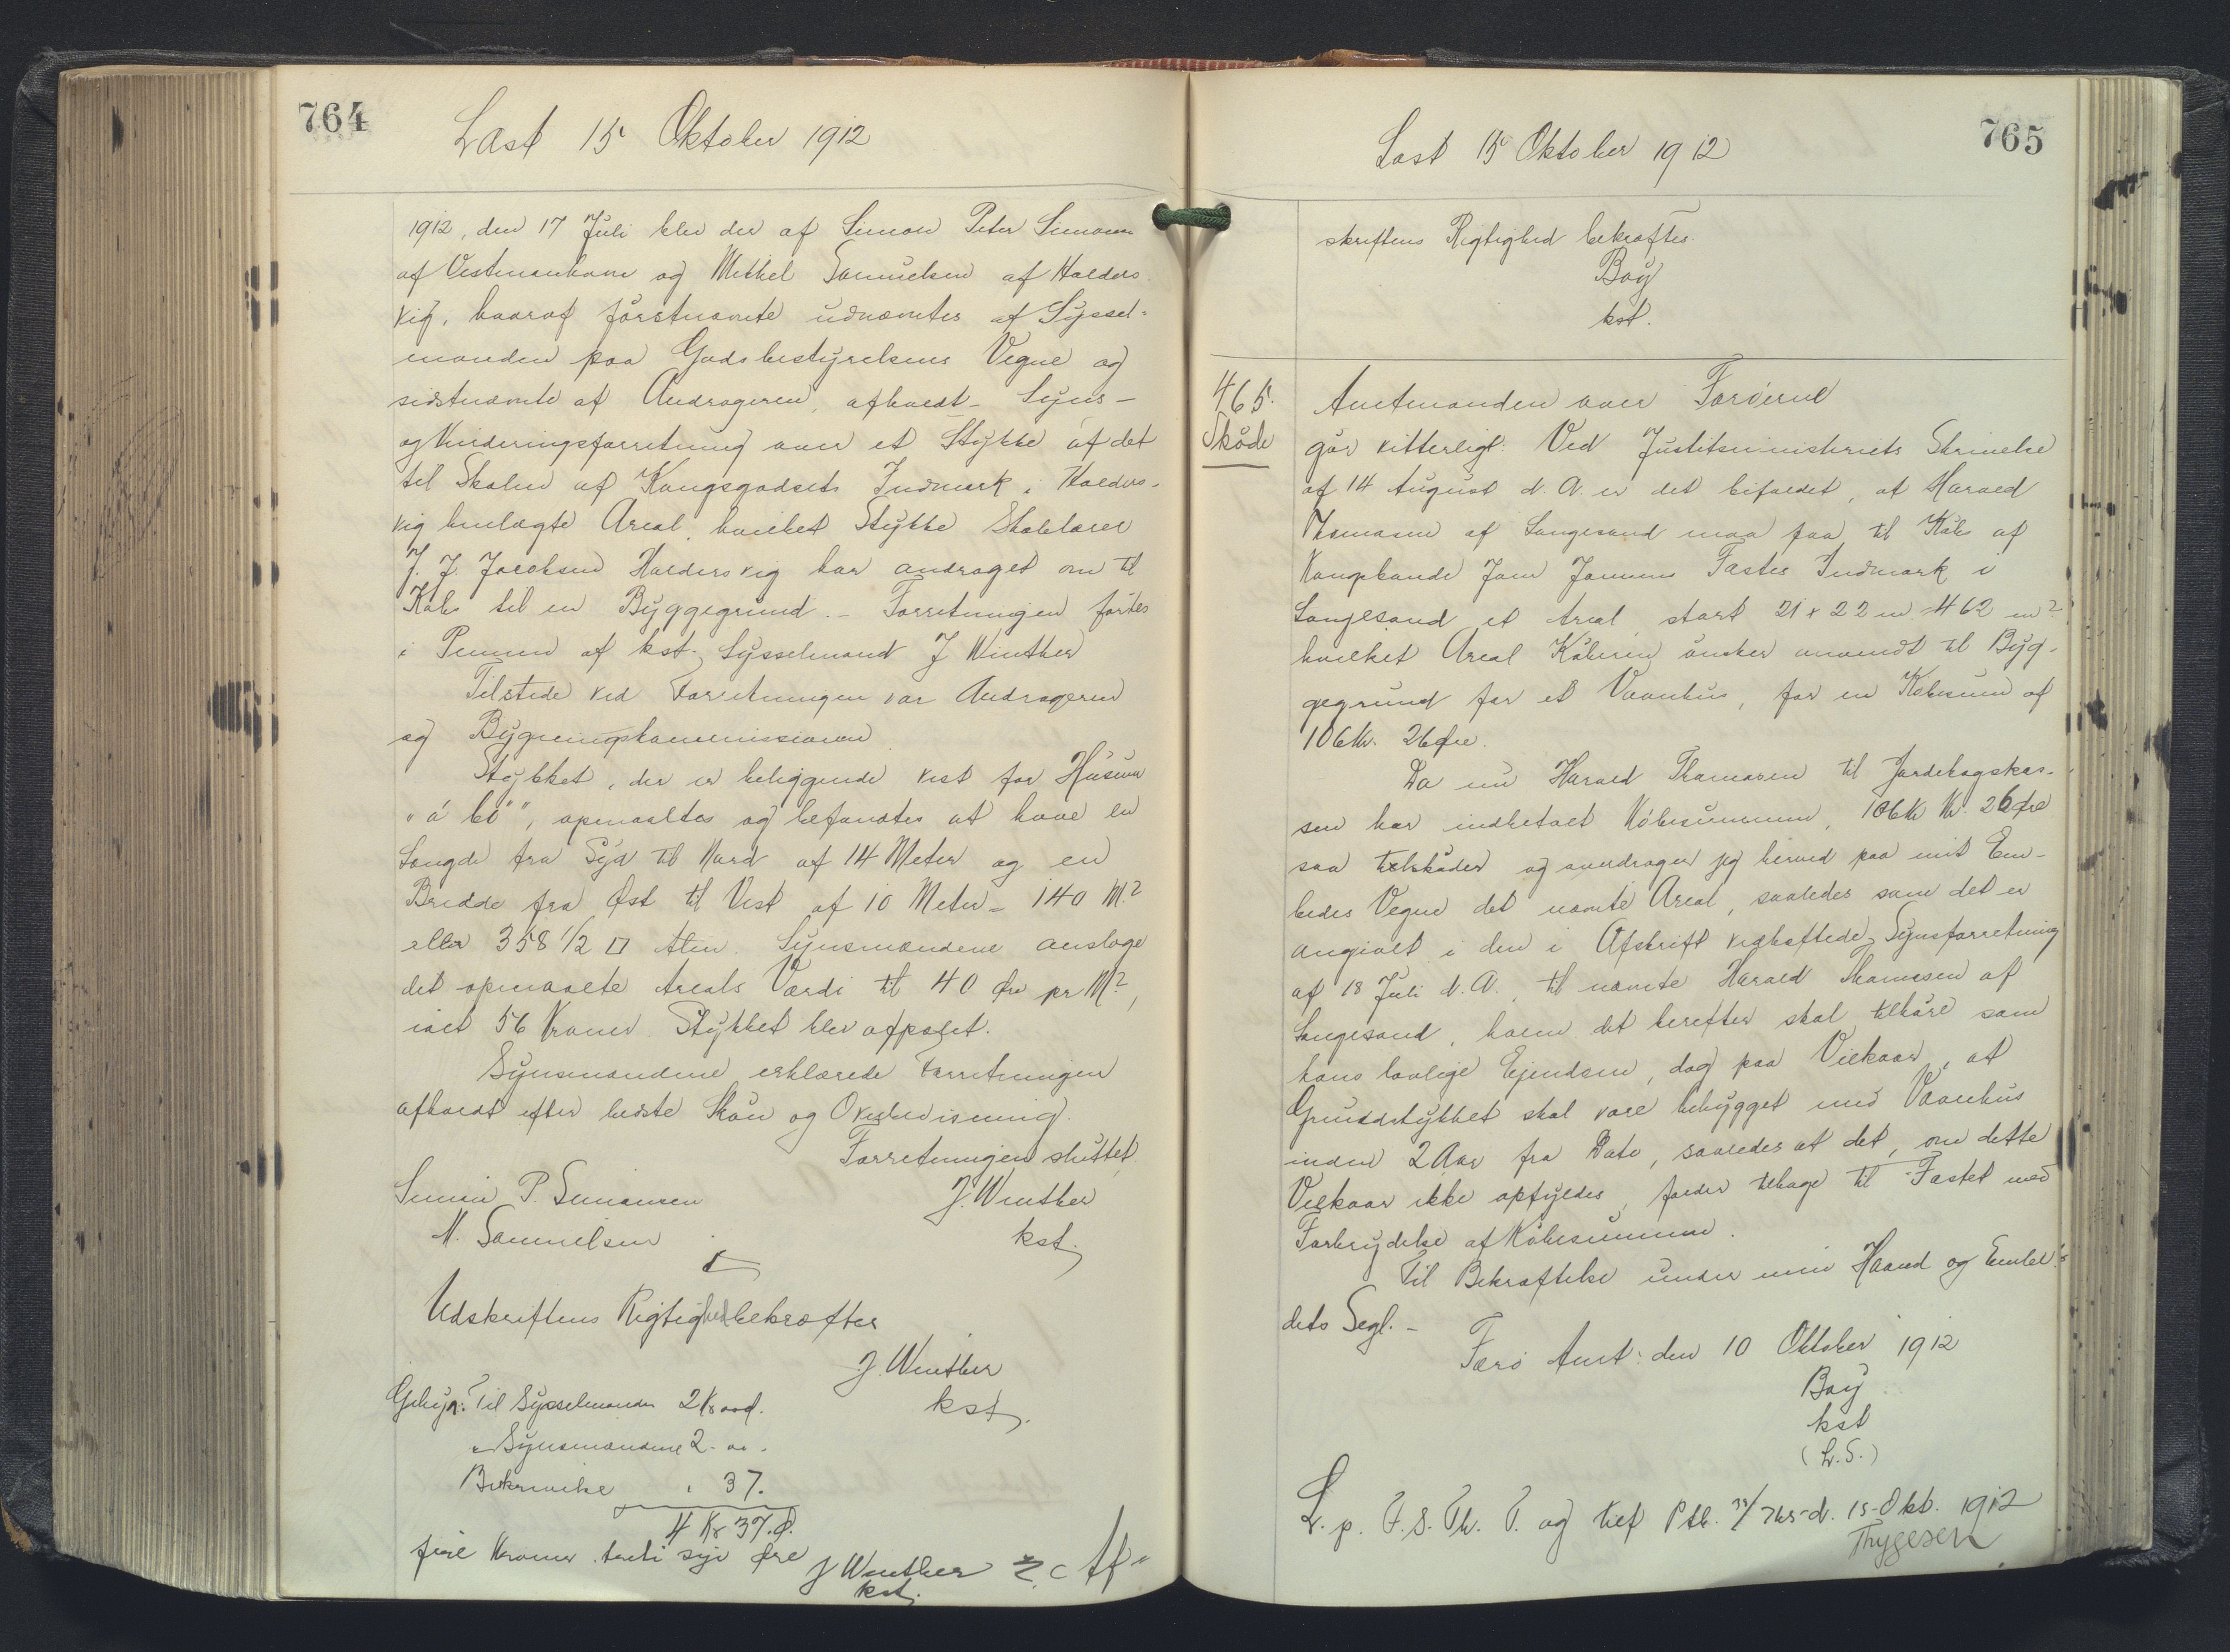 764
Læst 15 Oktober 1912
1912, den 17 Juli blev der af Simon Peter Simonsen
af Vestmanhavn og Mikkel Samuelsen af Halders-
vig, hvoraf förstnævnte udnævntes af Syssel-
manden paa Godsbestyrelsens Vegne og
sidstnævnte af Andrageren, afholdt Syns-
og Vurderingsforretning over et Stykke af det
til Skolen af Kongsgodsets Indmark i Halders-
vig henlagte Areal, hvilket Stykke Skolelærer
J. J. Jacobsen Haldersvig har andraget om til
Köb til en Byggegrund. - Forretningen förtes
i Pennen af kst. Sysselmand J Winther
Tilstede ved Forretningen var Andrageren
og Bygningskommissionen
Stykket, der er beliggende vest for Husene
"á bö", opmaaltes og befandtes at have en
Længde fra Syd til Nord af 14 Meter og en
Bredde fra Øst til Vest af 10 Meter = 140 M²
eller 358 1/2 □ Alen. Synsmændene ansloge
det opmaalte Areals Værdi til 40 Øre pr M²,
ialt 56 Kroner. Stykket blev afpælet.
Synsmændene erklærede Forretningen
afholdt efter bedste Skön og Overbevisning.
Forretningen sluttet
Simon P. Simonsen J. Winther
M. Samuelsen kst.
Udskriftens Rigtighed bekræftes
J. Winther
kst.
Gebyr: Til Sysselmanden 2 Kr
" Synsmændene 2 -
Bekrivelse " 37.
4 Kr 37. Ø.
fire Kroner treti syv Øre
J Winther
kst.
765
Læst 15 Oktober 1912
skriftens Rigtighed bekræftes.
Bay
kst.
465.
Sköde
Amtmanden over Færöerne
gör vitterligt: Ved Justitsministeriets Skrivelse
af 14 August d. A. er det bifaldet, at Harald
Thomasen af Langesand maa faa til Köb af
Kongsbonde Joen Joensens Fæstes Indmark i
Langesand et Areal, stort 21 x 22 m = 462 m²
hvilket Areal Köberen önsker anvendt til Byg-
gegrund for et Vaanhus, for en Köbesum af
106 Kr. 26 Øre.
Da nu Harald Thomasen til Jordebogskas-
sen har indbetalt Köbesummen, 106 Kr. 26 Øre
saa tilsköder og overdrager jeg herved paa mit Em-
bedes Vegne det nævnte Areal, saaledes som det er
angivet i den i Afskrift vedhæftede Synsforretning
af 18 Juli d. A., til nævnte Harald Thomasen af
Langesand, hvem det herefter skal tilhöre som
hans lovlige Ejendom, dog paa Vilkaar, at
Grundstykket skal være bebygget med Vaanhus
inden 2 Aar fra Dato, saaledes at det, om dette
Vilkaar ikke opfyldes, falder tilbage til Fæstet med
Forbrydelse af Köbesummen.
Til Bekræftelse under min Haand og Embe-
dets Segl. -
Færö Amt: den 10 Oktober 1912
Bay
kst
(L. S.)
L. p. F. S. Th. T. og tilf Ptb. d. 15 Okt. 1912
Thygesen